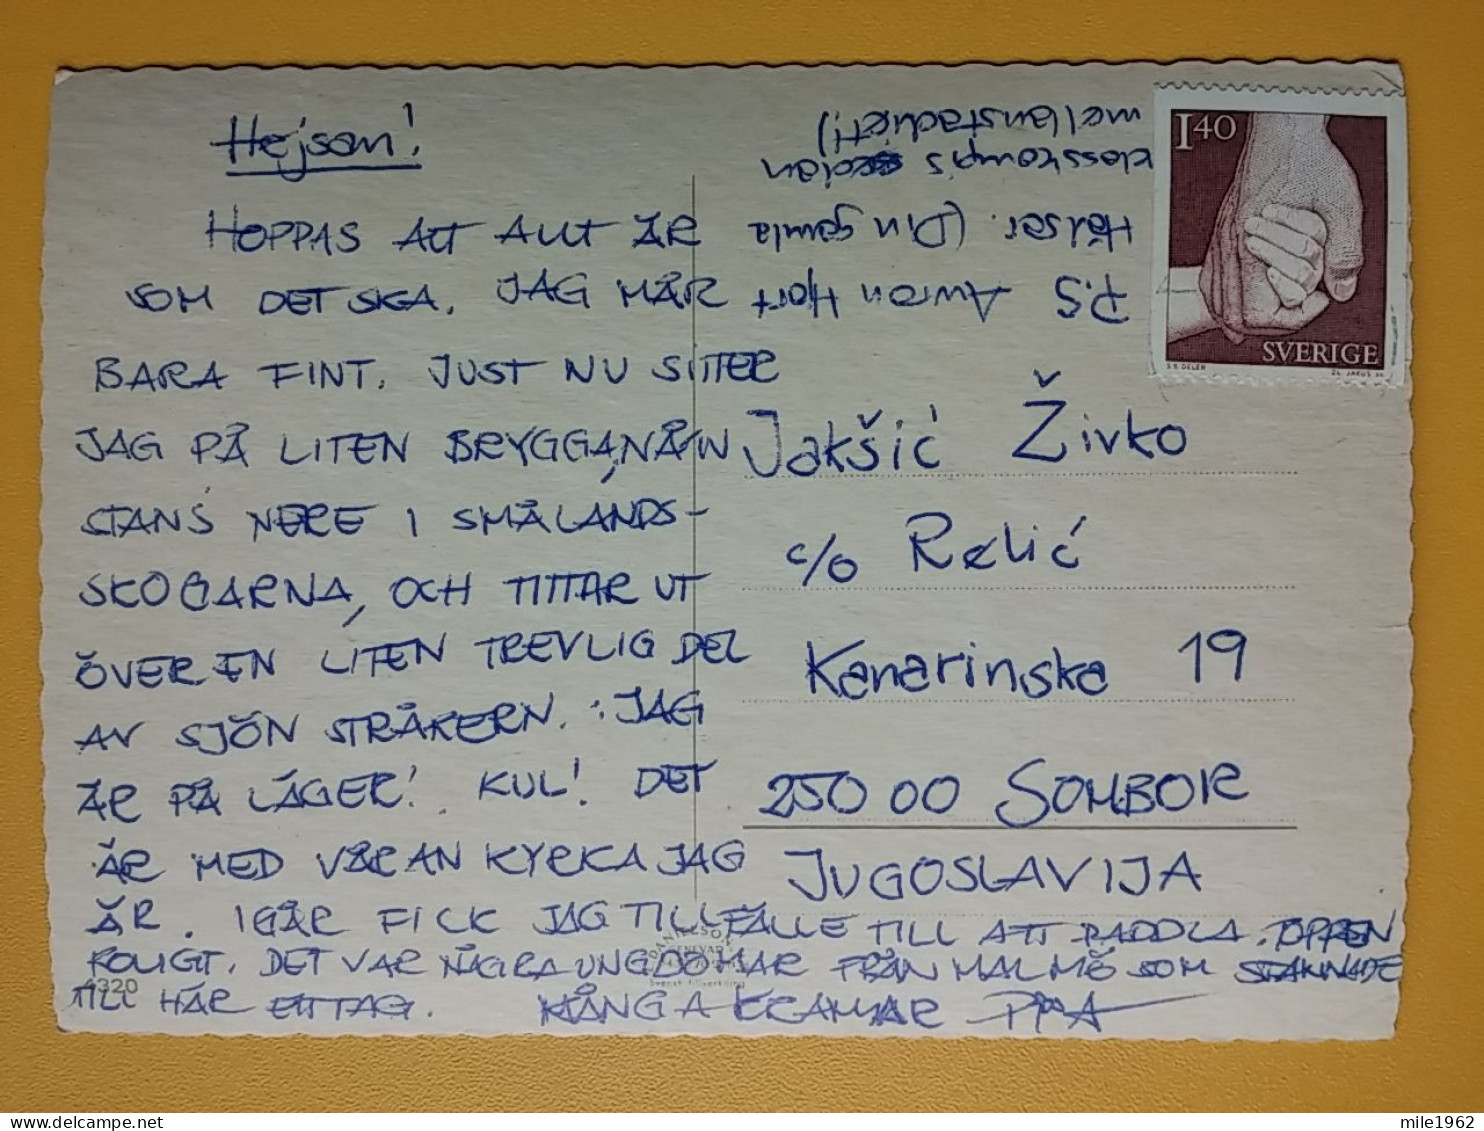 Hejsan!
HOPPAS ATT ALLT ÄR
SOM DET SKA. JAG MÅR
BARA FINT. JUST NU SITTER
JAG PÅ LITEN BRYGGA, NÅN
STANS NERE I SMÅLANDS-
SKOGARNA, OCH TITTAR UT
ÖVER EN LITEN TREVLIG DEL
AV SJÖN STRÅKERN. JAG
ÄR PÅ LÄGER! KUL! DET
ÄR MED VÅRAN KYRKA JAG
ÄR. IGÅR FICK JAG TILLFÄLLE TILL ATT PADDLA.
ROLIGT. DET VAR NÅGRA UNGDOMAR FRÅN MALMÖ SOM
TILL HÄR ETT TAG. MÅNGA KRAMAR
P.S Hjort
Hälsar. (Din gamla
klasskompis sedan
mellanstadiet!)
1 40
SVERIGE
Jakšić Živko
c/o Relić
Kanarinska 19
25000 SOMBOR
JUGOSLAVIJA
4320
Svensk tillverkning
mile1962